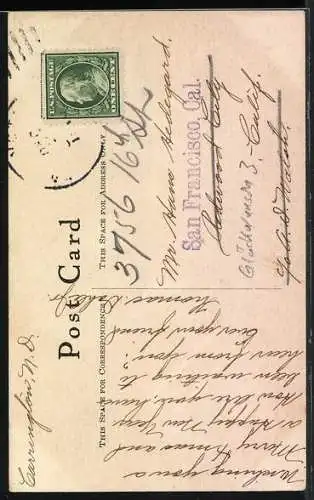 Carrington, N.D.
Post Card
THIS SPACE FOR CORRESPONDENCE
THIS SPACE FOR ADDRESS ONLY
U.S. POSTAGE
ONE CENT
Wishing you a
Merry Xmas and
a Happy New Year
How are you have
been waiting to
hear from you.
Ever your friend
Thomas
3756 16th St
Mr. Hans Hedegard.
San Francisco, Cal.
Redwood City
Calif.
Glückwunsch 3
Wash.